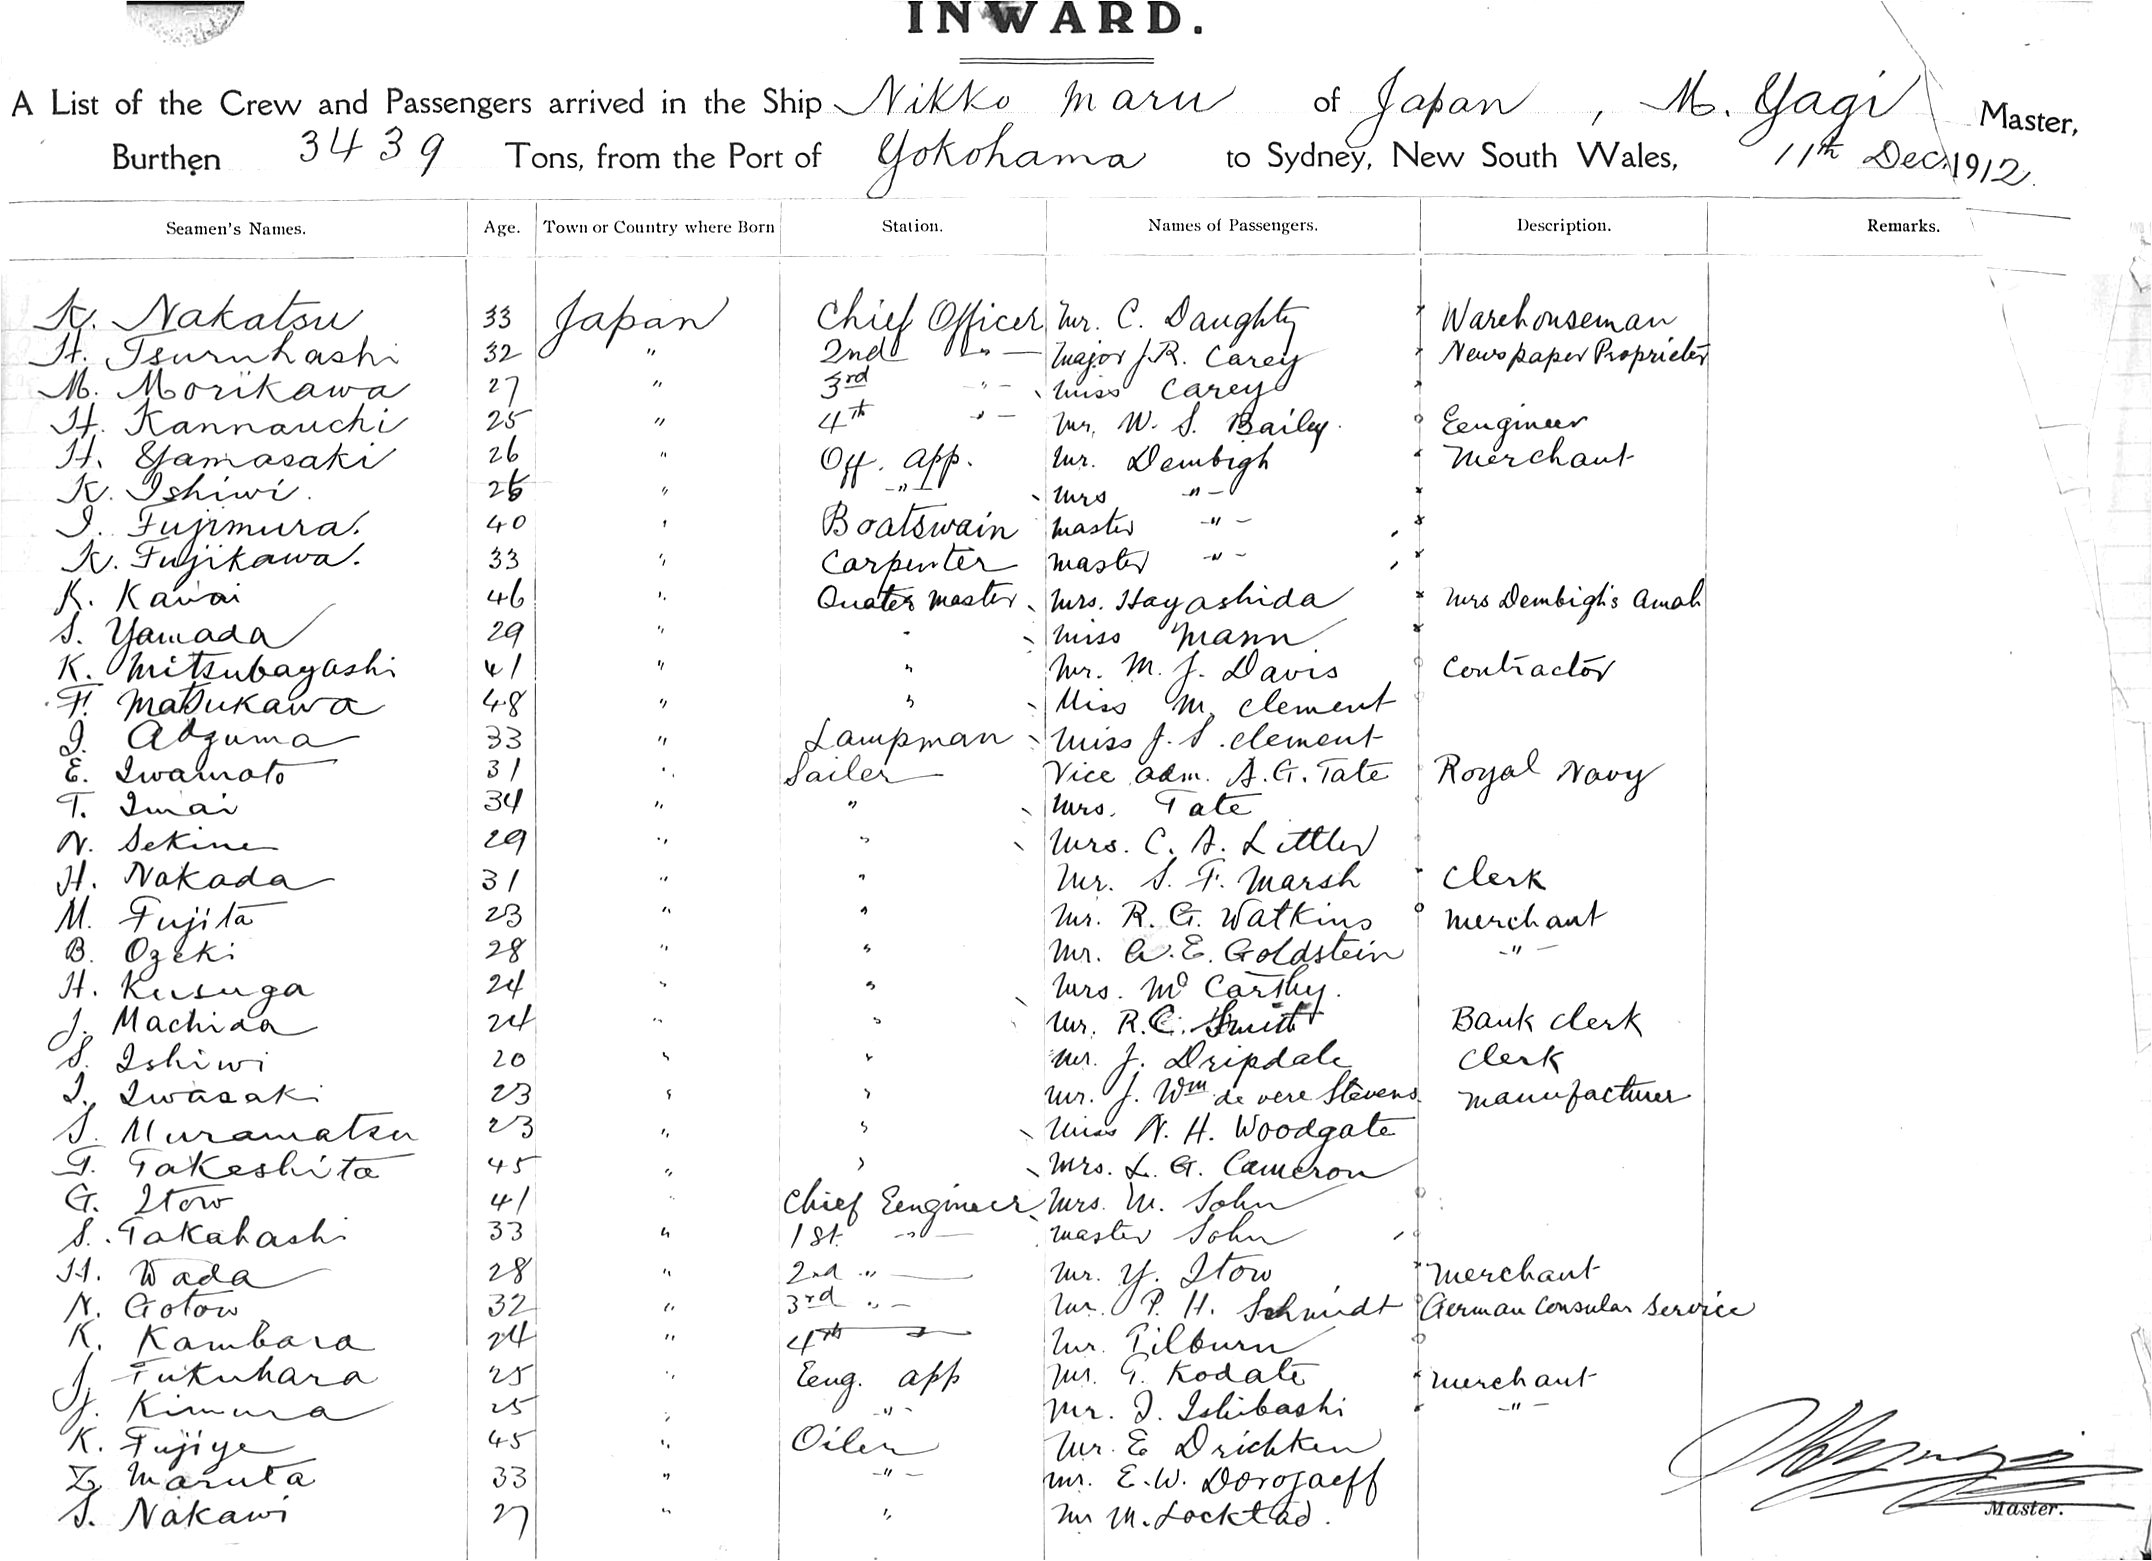 INWARD.
A List of the Crew and Passengers arrived in the Ship Nikko Maru of Japan, M. Yagi Master,
Burthen 3439 Tons, from the Port of Yokohama to Sydney, New South Wales, 11th Dec. 1912.
Seamen's Names. Age. Town or Country where Born Station. Names of Passengers. Description. Remarks.
K. Nakatsu 33 Japan Chief Officer Mr. C. Daughty Warehouseman
H. Tsuruhashi 32 " 2nd " Major J.R. Carey Newspaper Proprietor
M. Morikawa 27 " 3rd " Miss Carey
H. Kannauchi 25 " 4th " Mr. W. S. Bailey Eengineer
H. Yamasaki 26 " Off. app. Mr. Dembigh Merchant
K. Ishiwi. 26 " " Mrs "
I. Fujimura. 40 " Boatswain Master "
K. Fujikawa. 33 " Carpenter Master "
K. Kawai 46 " Quater Master Mrs. Hayashida Mrs Dembigh's Amah
S. Yamada 29 " " Miss Mann
K. Mitsubayashi 41 " " Mr. M. J. Davis Contractor
F. Matsukawa 48 " " Miss M. Clement
I. Adzuma 33 " Lampman Miss J. S. Clement
E. Iwamoto 31 " Sailer Vice Adm. A. G. Tate Royal Navy
T. Imai 34 " " Mrs. Tate
N. Sekine 29 " " Mrs. C. A. Littler
H. Nakada 31 " " Mr. S. F. Marsh Clerk
M. Fujita 23 " " Mr. R. G. Watkins Merchant
B. Ozeki 28 " " Mr. A. E. Goldstein "
H. Kusuga 24 " " Mrs. Mc Carthy.
J. Machida 24 " " Mr. R. C. Smith Bank Clerk
S. Ishiwi 20 " " Mr. J. Dripdale Clerk
I. Iwasaki 23 " " Mr. J. Wm de vere Stevens Manufacturer
S. Muramatsu 23 " " Miss N. H. Woodgate
T. Takeshita 45 " " Mrs. L. G. Cameron
G. Itow 41 " Chief Eengineer Mrs. M. Sohn
S. Takahashi 33 " 1st " Master Sohn
H. Wada 28 " 2nd " Mr. Y. Itow Merchant
N. Gotow 32 " 3rd " Mr. P. H. Schmidt German Consular Service
K. Kambara 24 " 4th " Mr. Tilburn
J. Fukuhara 25 " Eeng. app Mr. G. Kodate Merchant
J. Kimura 25 " " Mr. I. Ishibashi "
K. Fujiye 45 " Oiler Mr. E Drichken
Z. Maruta 33 " " Mr. E. W. Dorojaeff
S. Nakawi 27 " " Mr M. Locktad.
Master.